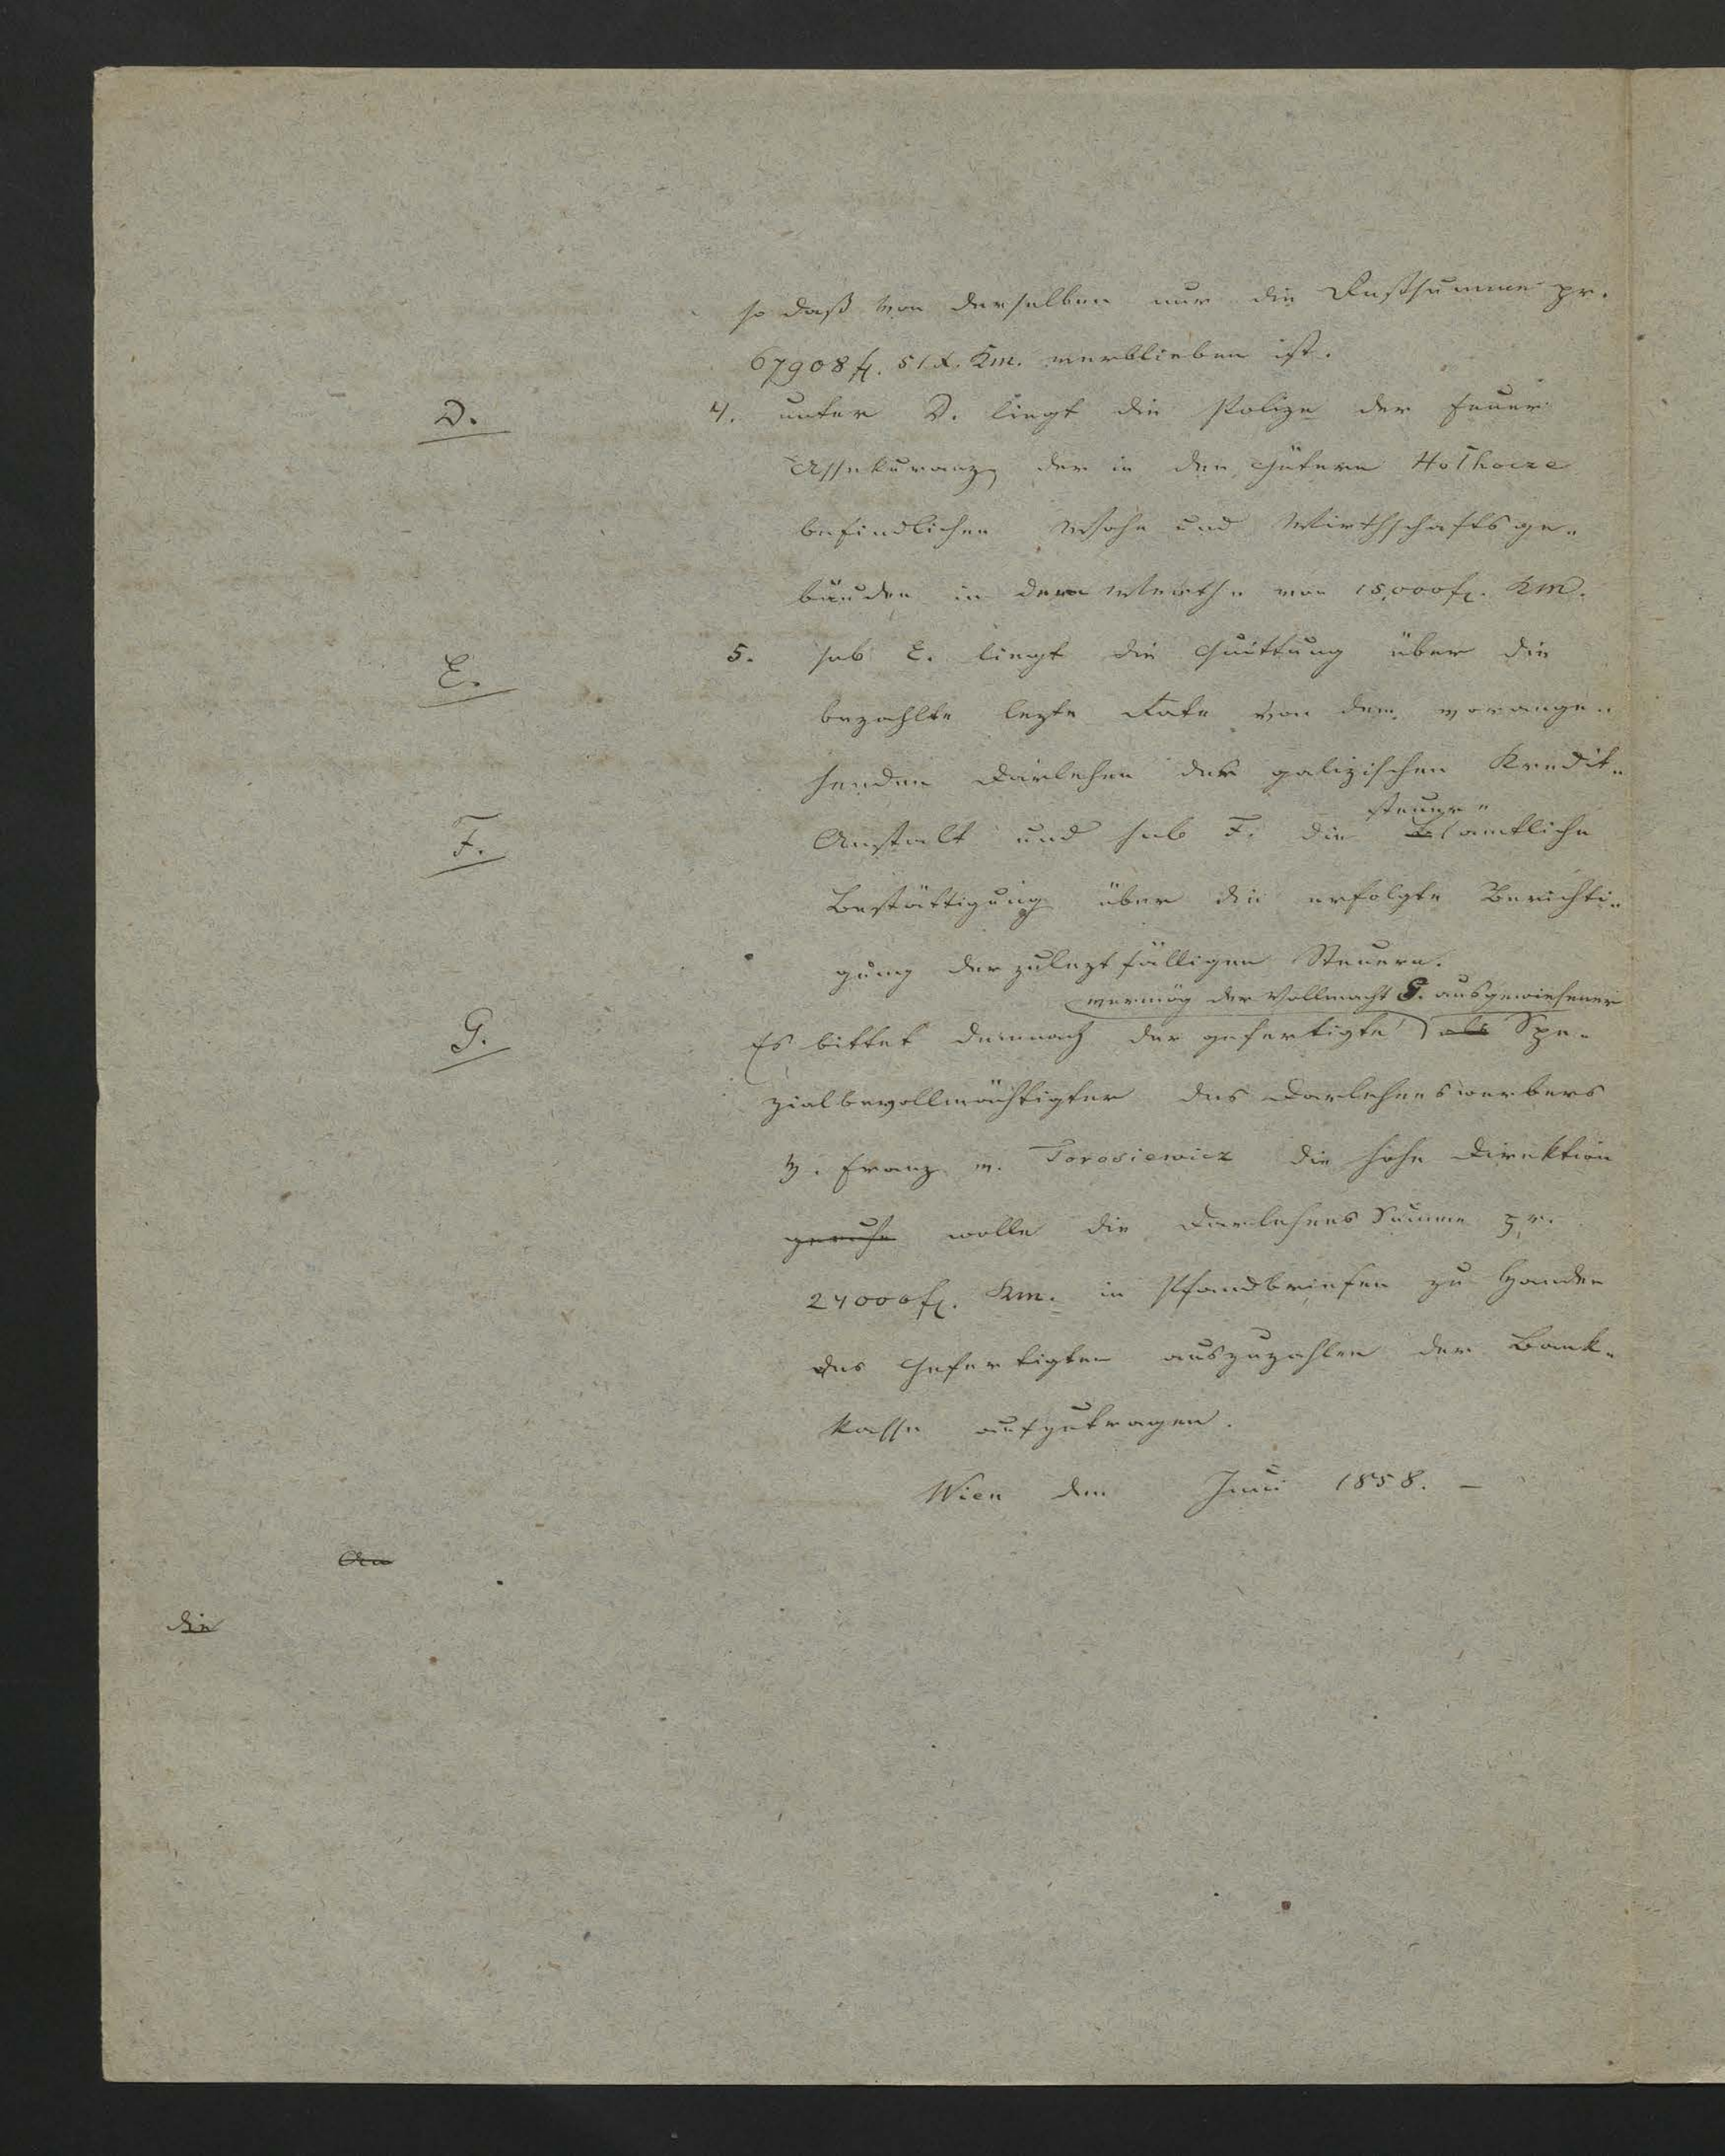 so daß von derselben nur die Restsumme pr.
67908 fl. 51 x. Km. verblieben ist.
D.
4. unter D. liegt die Polize der Feuer
Assekuranz der in den Gütern Hołhocze
befindlichen Wohn und Wirthschaftsge-
bäuden in dem Werthe von 15,000 fl. KM.
E.
5. sub E. liegt die Quittung über die
bezahlte lezte Rate von dem vorange-
henden Darlehen der galizischen Kredit-
steuer-
F.
Anstalt und sub F. die amtliche
Bestättigung über die erfolgte Berichti-
gung der zulezt fälligen Steuern.
vermög der Vollmacht G. ausgewiesener
G.
Es bittet demnach der gefertigte als Spe-
zialbevollmächtigter des Darlehenswerbers
H. Franz v. Torosiewicz die hohe Direktion
geruhe wolle die Darlehens Summe pr.
24000 fl. Km. in Pfandbriefen zu Handen
des Gefertigten auszuzahlen der Bank-
kasse aufzutragen.
Wien den Juni 1858. –
An
die